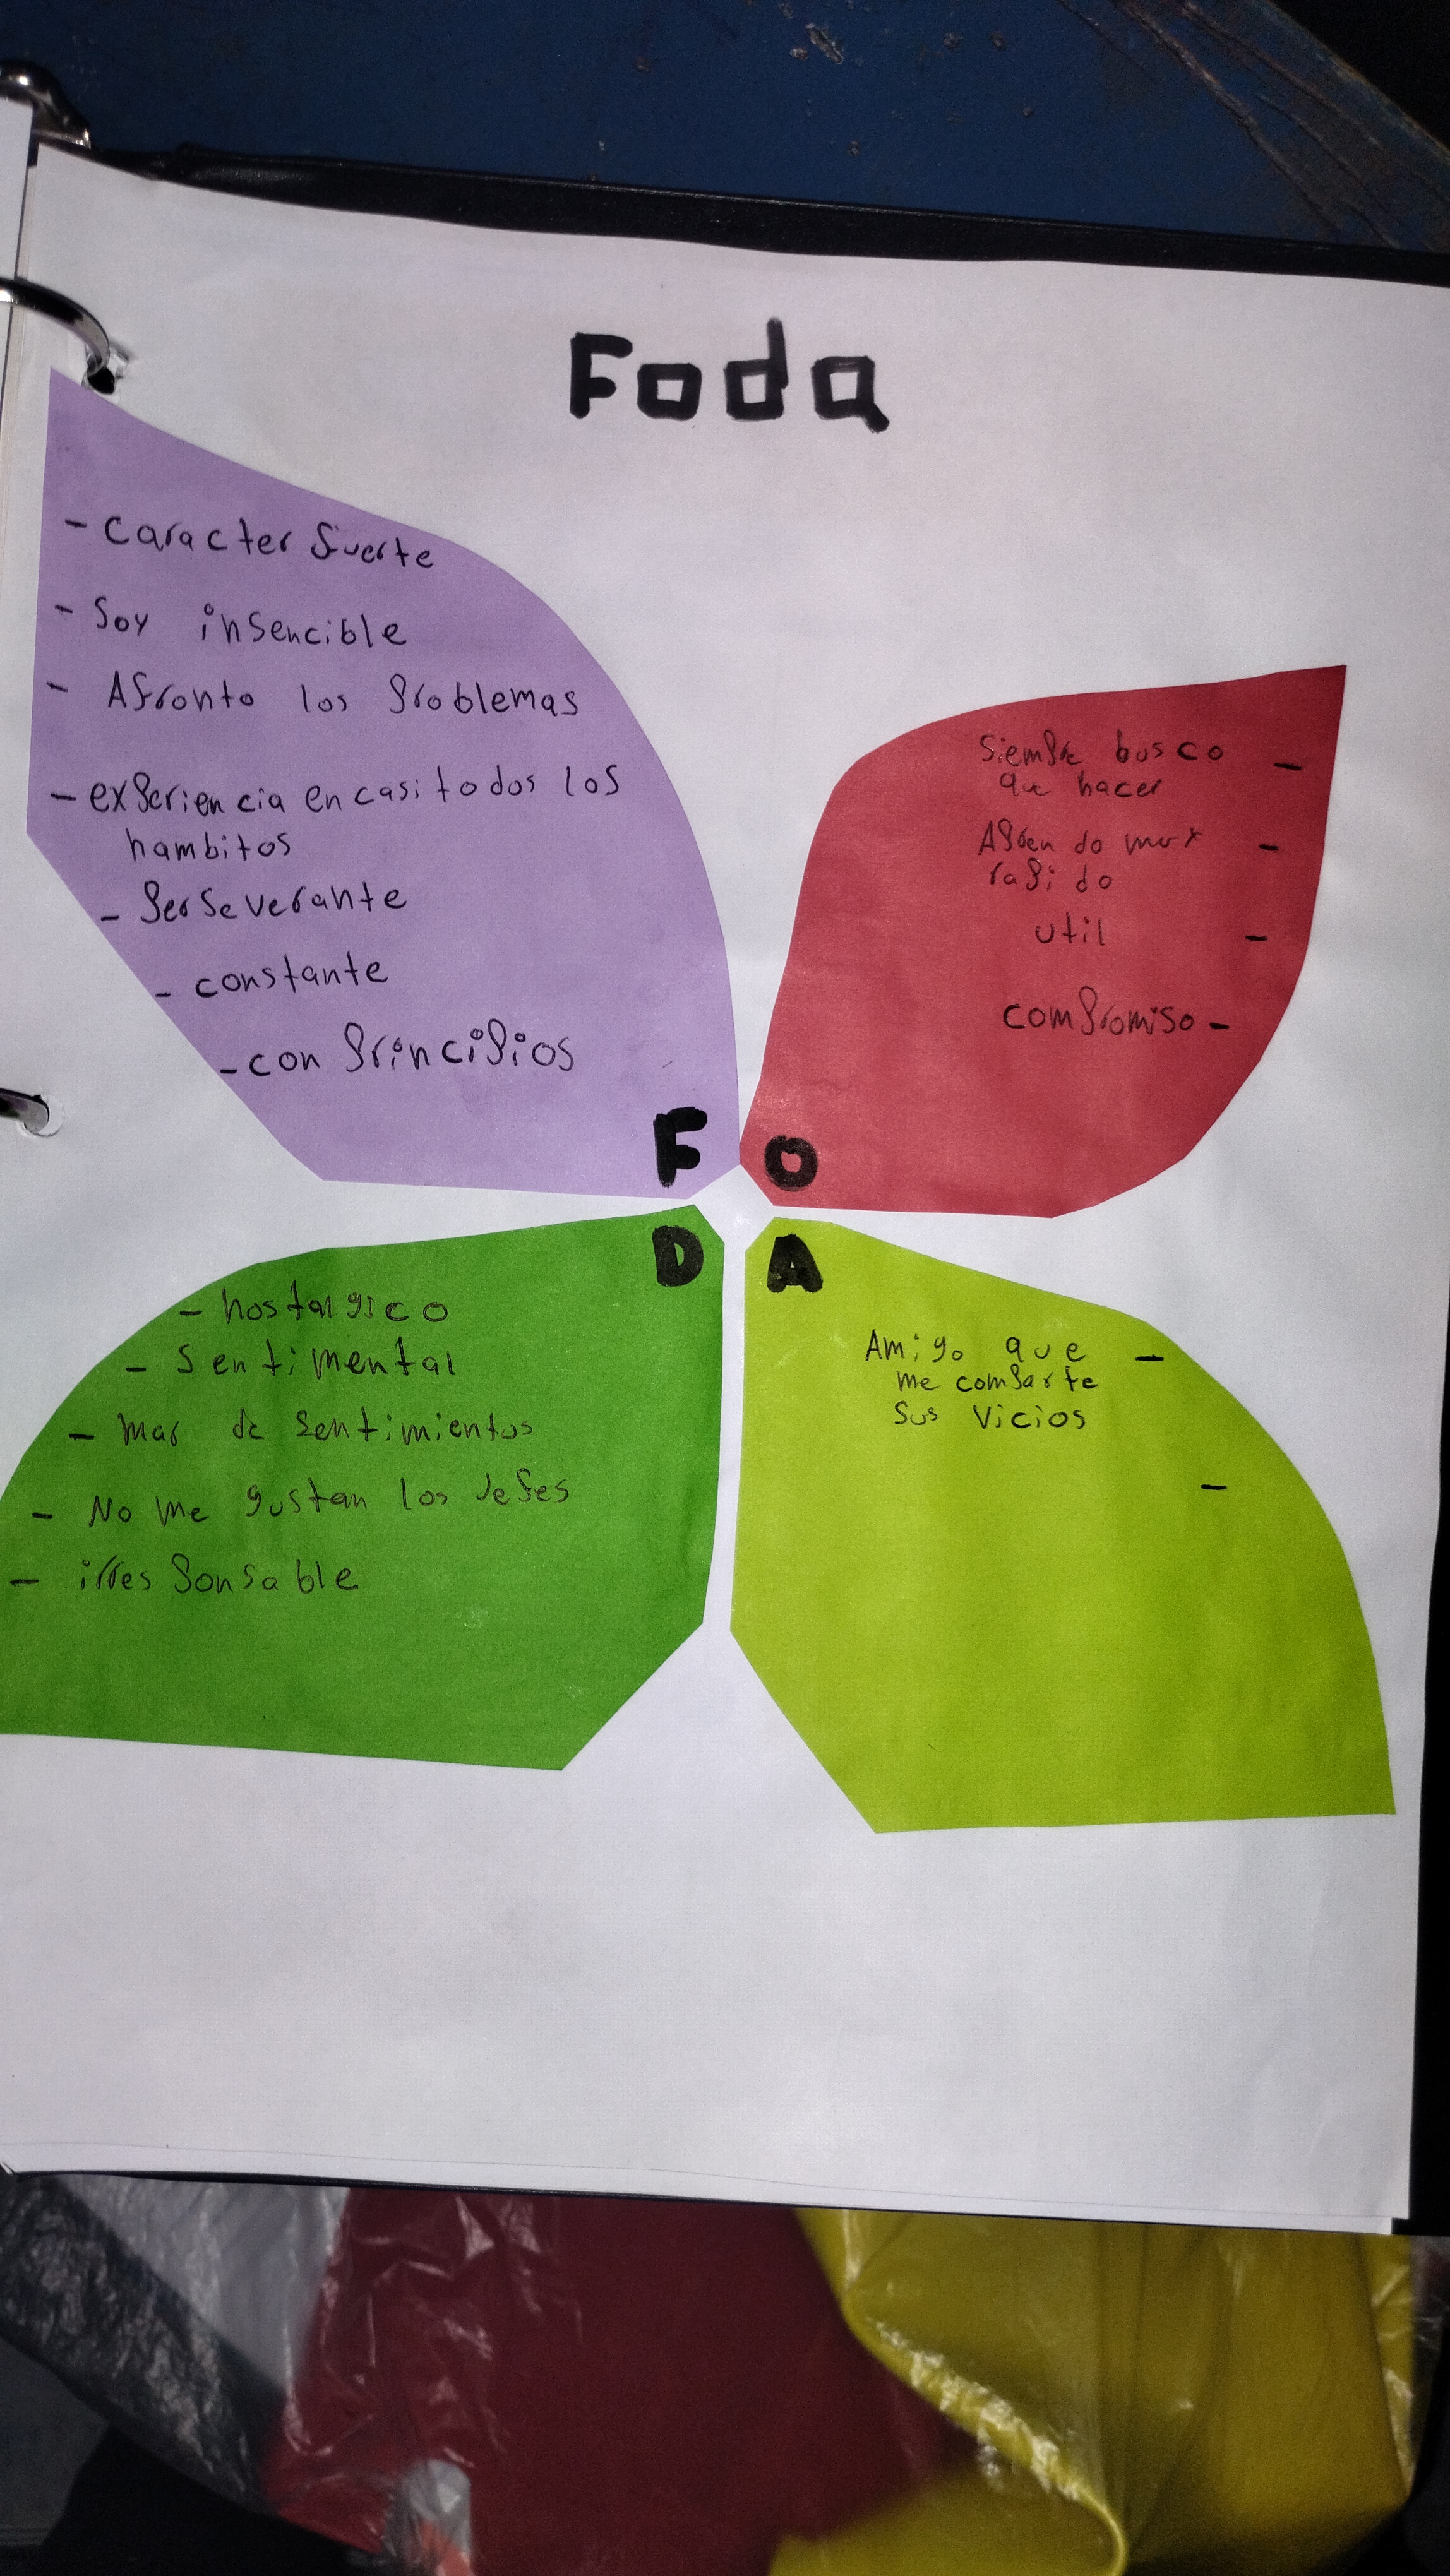 Foda
- caracter fuerte
- Soy insencible
- Afronto los problemas
- experiencia en casi todos los
hambitos
- perseverante
- constante
- con principios
F
siempre busco -
que hacer
Aprendo muy -
rapido
util -
compromiso -
O
D
- nostalgico
- sentimental
- mar de sentimientos
- No me gustan los Jefes
- irresponsable
A
Amigo que -
me comparte
sus vicios
-